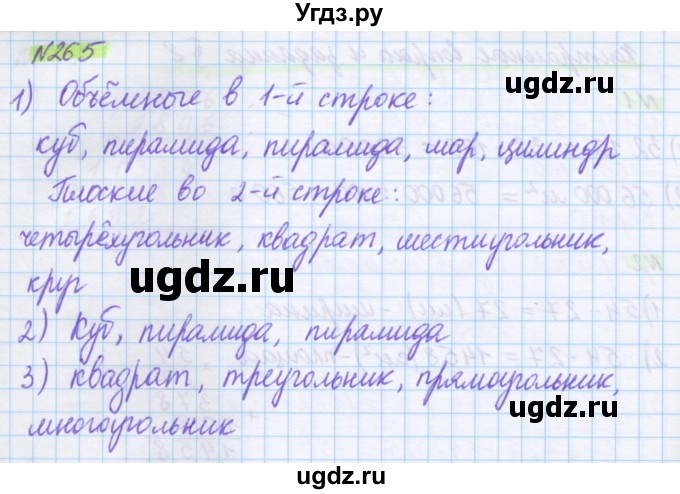 Угдз.ру
№265
1) Объёмные в 1-й строке:
куб, пирамида, пирамида, шар, цилиндр
Плоские во 2-й строке:
четырёхугольник, квадрат, шестиугольник,
круг
2) Куб, пирамида, пирамида
3) квадрат, треугольник, прямоугольник,
многоугольник
ugdz.ru
ugdz.ru
ugdz.ru
ugdz.ru
ugdz.ru
ugdz.ru
ugdz.ru